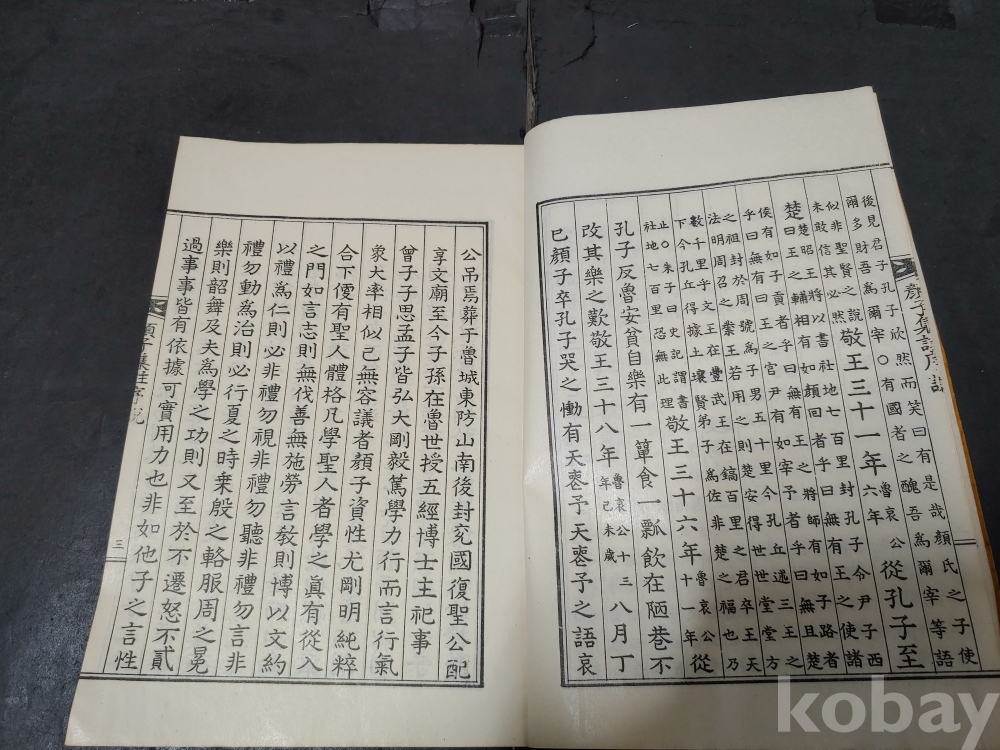 後見君子孔子欣然而笑曰有是哉顏氏之子使
爾多財吾爲爾宰〇有國者之醜吾爲爾宰等語
似非聖賢之說
未敢信其必然
敬王三十一年
魯哀公
六年
從孔子至
楚
楚昭王將以書社地七百里封孔子令尹子西
曰王之輔相有如顏回者乎曰無有王之使諸
侯有如子貢者乎曰無有王之將師有如子路者
乎曰無有王之官尹有如宰予者乎曰無有且楚
之祖封於周號爲子男五十里今孔丘述三王之
法明周召之業王若用之則楚安得世世堂堂方
數千里乎文王在豐武王在鎬百里之君卒王天
下今孔丘得據土壤賢弟子爲佐非楚之福也乃
止〇朱子曰史記謂書
社地七百里恐無此理
敬王三十六年
魯哀公
十一年
從
孔子反魯安貧自樂有一簞食一瓢飲在陋巷不
改其樂之歎敬王三十八年
魯哀公十三
年己未歲
八月丁
巳顏子卒孔子哭之慟有天喪予天喪予之語哀
公吊焉葬于魯城東防山南後封兗國復聖公配
享文廟至今子孫在魯世授五經博士主祀事
曾子子思孟子皆弘大剛毅篤學力行而言行氣
象大率相似已無容議者顏子資性尤剛明純粹
合下便有聖人體格凡學聖人者學之眞有從入
之門如言志則無伐善無施勞言敎則博以文約
以禮爲仁則必非禮勿視非禮勿聽非禮勿言非
禮勿動爲治則必行夏之時乘殷之輅服周之冕
樂則韶舞及夫爲學之功則又至於不遷怒不貳
過事事皆有依據可實用力也非如他子之言性
三
kobay